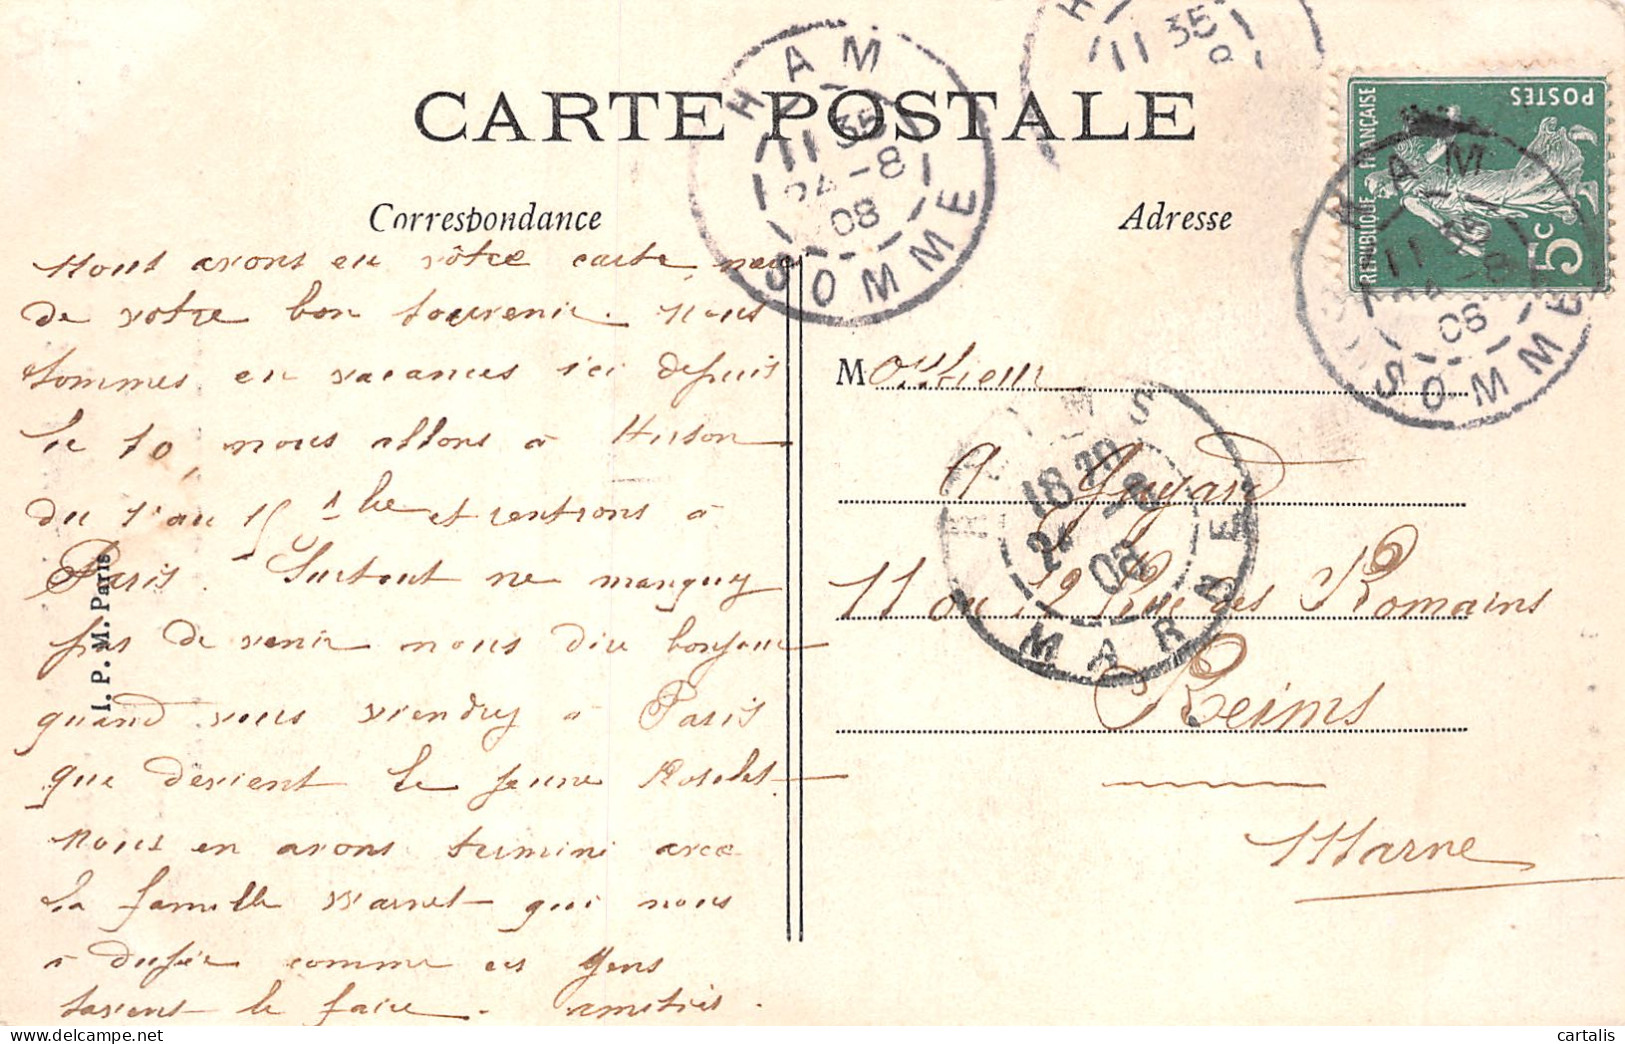 CARTE POSTALE
Correspondance
Adresse
HAM
11 35
24-8
08
SOMME
H
11 35
8
RÉPUBLIQUE FRANÇAISE
POSTES
5c
HAM
11 35
-8
08
SOMME
REIMS
18 30
08
MARNE
Nous avons eu vôtre carte,
de votre bon souvenir. Nous
sommes en vacances ici depuis
le 10, nous allons à Hirson
du 1er au 15 7bre et rentrons à
Paris. Surtout ne manquez
pas de venir nous dire bonjour
quand vous viendrez à Paris
que devient le jeune
Nous en avons terminé avec
la famille Warnet qui nous
a comme ces gens
savent le faire. amitiés.
I. P. M. Paris
Monsieur
A Guyard
11 ou 12 Rue des Romains
Reims
Marne
cartalis